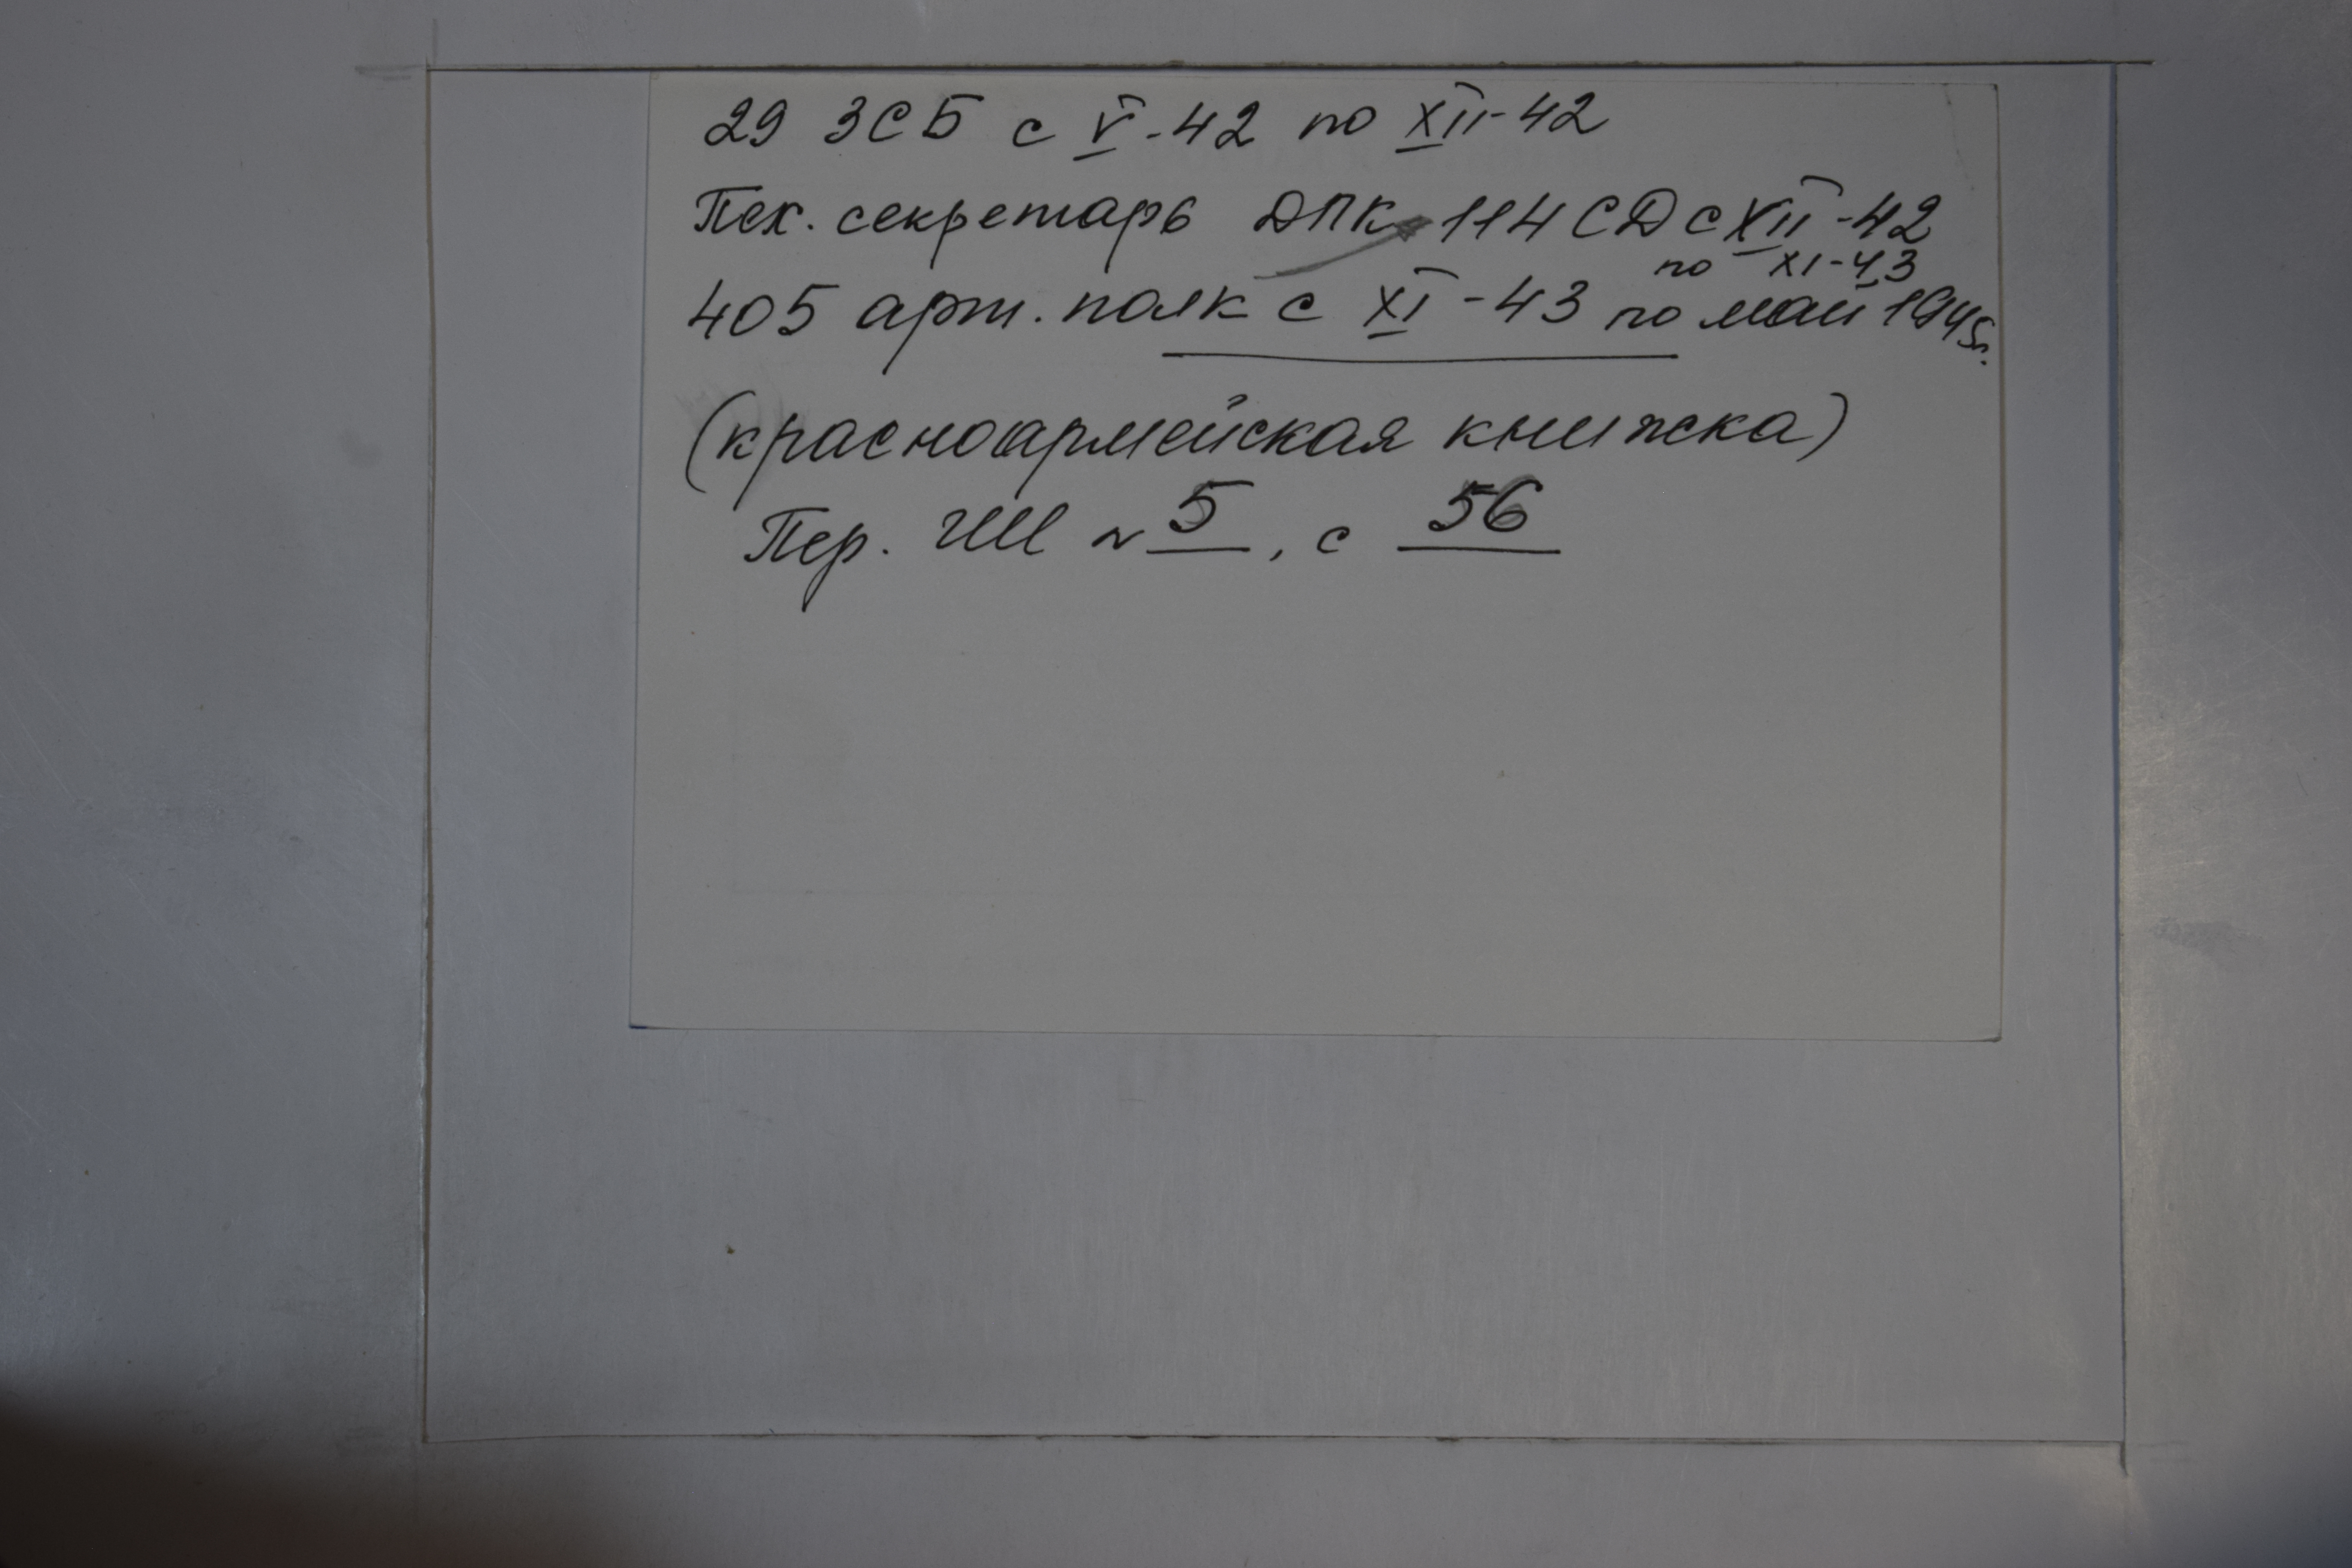 29 ЗСБ с V-42 по XII-42
Тех. секретарь ДПК 114 СД с XII-42
по XI-43
405 арт. полк с XI-43 по май 1945г.
(красноармейская книжка)
Пер. № 5, с 56